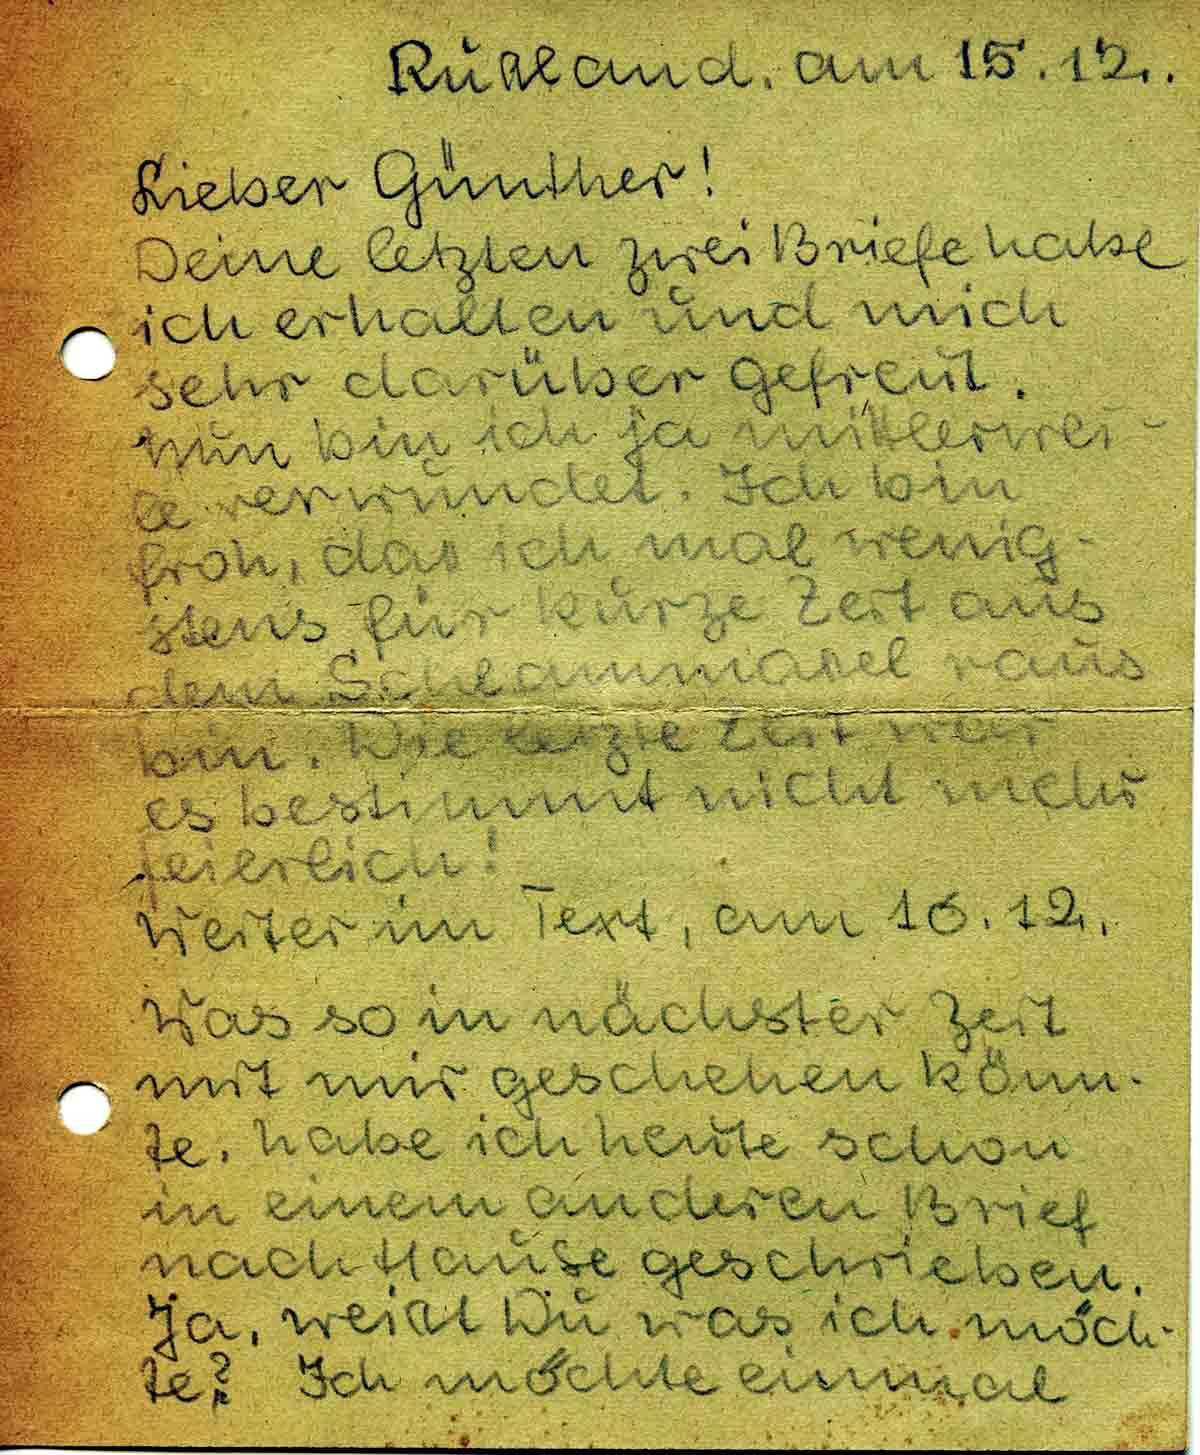 Rußland, am 15.12..
Lieber Günther!
Deine letzten zwei Briefe habe
ich erhalten und mich
sehr darüber gefreut.
Nun bin ich ja mittlerwei-
le verwundet. Ich bin
froh, daß ich mal wenig-
stens für kurze Zeit aus
dem Schlammaßel raus
bin. Die letzte Zeit war
es bestimmt nicht mehr
feierlich!
Weiter im Text, am 16.12..
Was so in nächster Zeit
mit mir geschehen könn-
te, habe ich heute schon
in einem anderen Brief
nach Hause geschrieben.
Ja, weißt Du was ich möch-
te? Ich möchte einmal